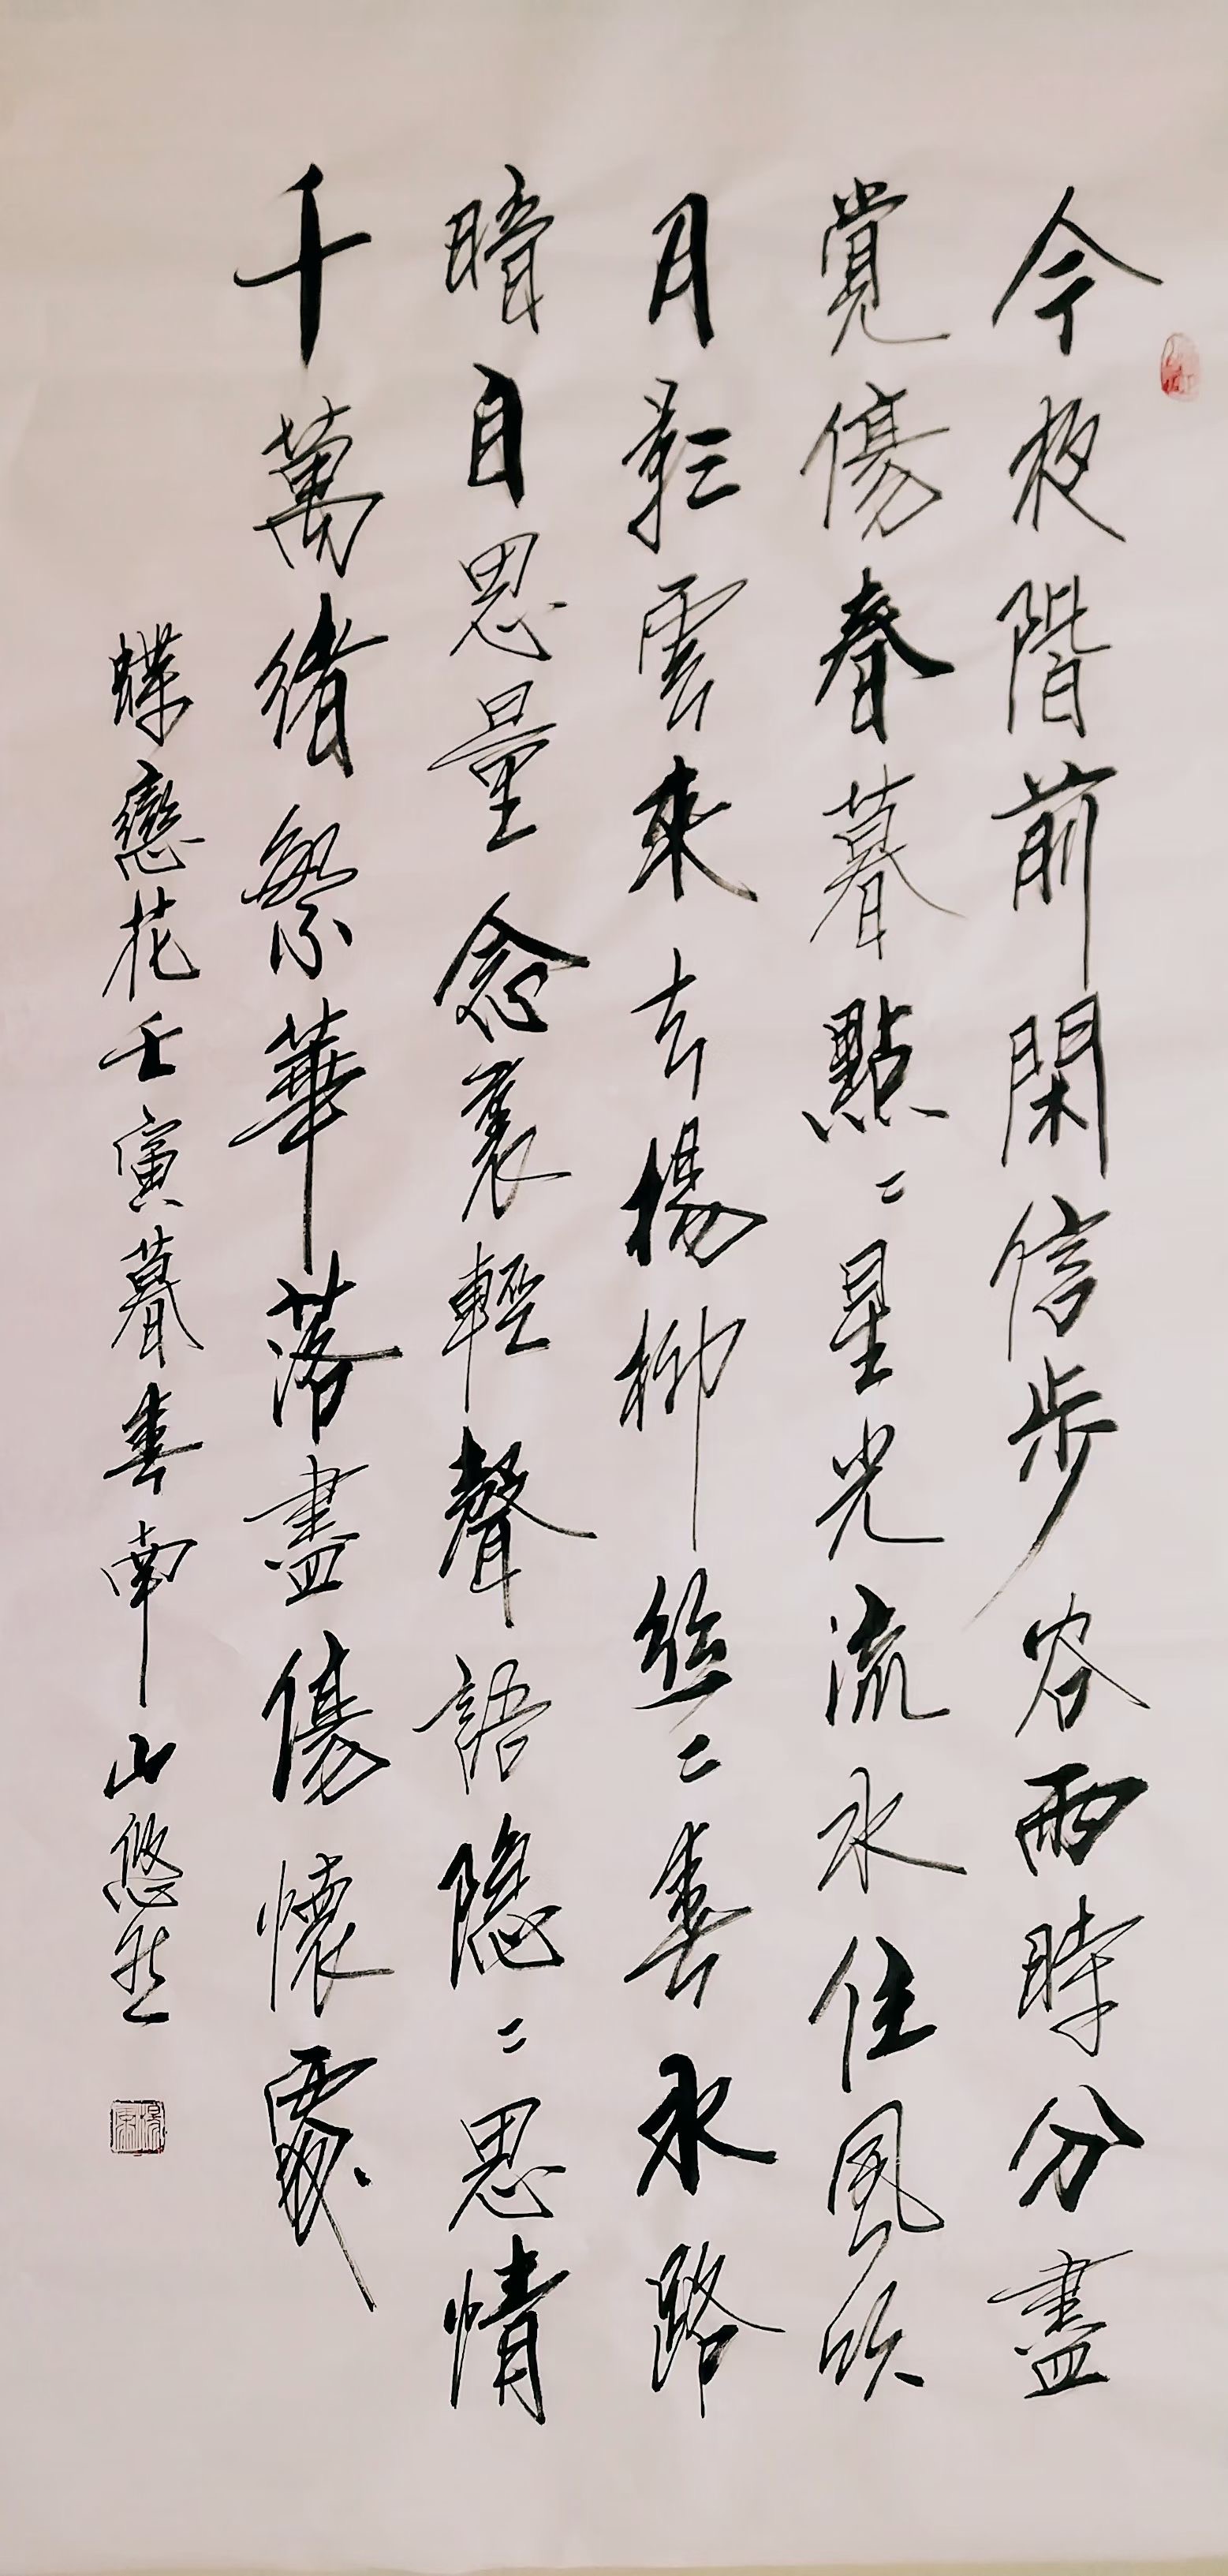 今夜階前閑信步谷雨時分盡
覺傷春暮點々星光流水住風吹
月影雲來去楊柳絲々春水路
暗自思量念裏輕聲語隱々思情
千萬緒繁華落盡傷懷處
蝶戀花壬寅暮春南山悠然